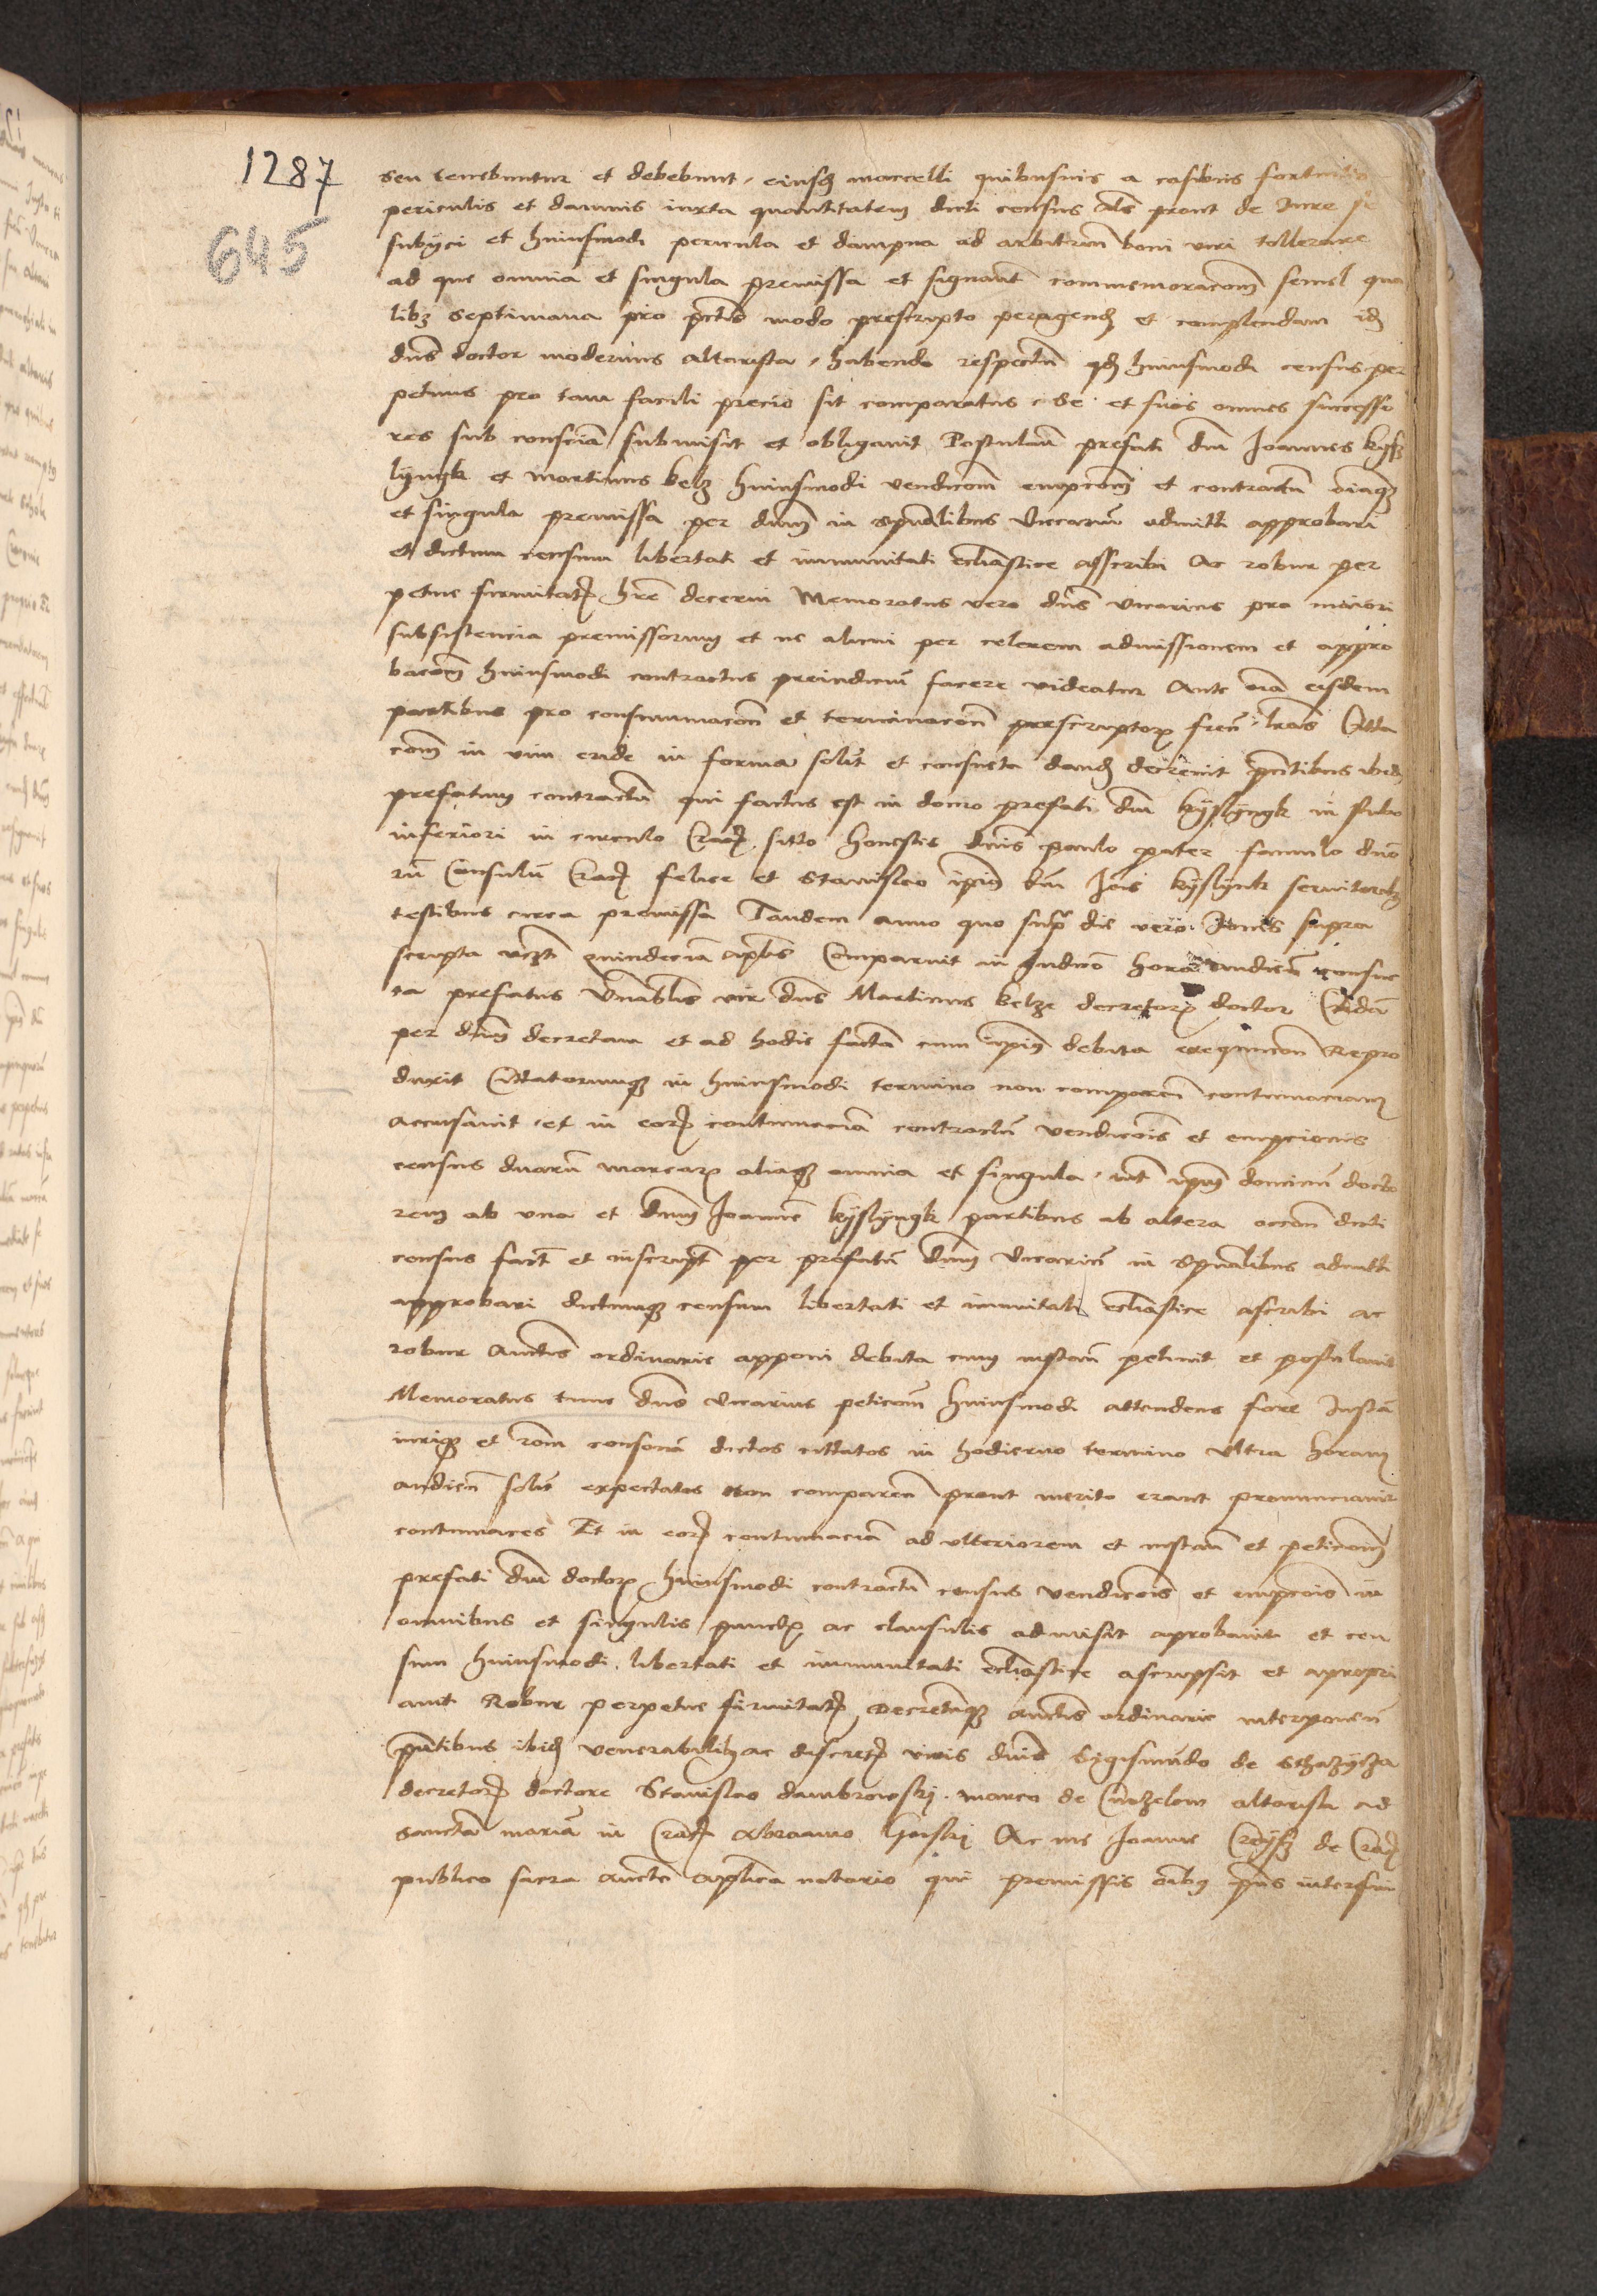 1287
645
seu tenebuntur et debebunt, eiusdem maccelli quibusuis a casibus fortuitis
periculis et damnis iuxta quantitatem dicti census als prout de Jure
subijci et huiusmodi pericula et dampna ad arbitrium boni viri tollerare
ad que omnia et singula premissa et signant commemoracom semel qua
libet septimana pro modo prescripto peragend et complendam id
dns doctor modernus altarista, habendo respectu qd huiusmodi census per
petuus pro tam facili precio sit comparatus Se et suos omnes successo
res sub consciã submisit et obligauit Postulãn prefati dni Joannes kyß
lyngk et Martinus belz huiusmodi vendicom empcom et contractu oiaqz
et singula premissa per dnm in spualibus Vicarium admitti approbari
et dictum censum libertati et immunitati eccliastice asscribi Ac robur per
petue firmitatis hre decerni Memoratus vero dns vicarius pro maiori
subsistencia premissorum et ne alicui per celerem admissionem et appro
bacom huiusmodi contractus preiudiciu facere videatur Ante oia eisdem
partibus pro consummacom et terminacom prescriptorz lras Citta
com in vim cride in forma solit et consueta dand decreuit pntibus ibid
prefatum contractu qui factus est in domo prefati dni kyslyngk in stuba
inferiori in circulo Crac sitto honestis dnis paulo pater famulo dno
ru Consulu Crac felice et Stanislao ipius dni Jois kyslynk seruitoribus
testibus circa premissa Tandem anno quo supra die vero Jouis supra
scripta quindecima Aplis Comparuit in Judicio hora audien consue
ta prefatus Vnablis vir dns Martinus belze decretorz doctor Cridã
per dnm decretam et ad hodie facta cum ipius debita exequcion Repro
duxit Cittatorumqz in huiusmodi termino non comparen contumaciam
accusauit et in eorz contumaciã contractu vendicois et empcionis
census duaru marcarz aliaqz omnia et singula int ipm dominu docto
rem ab vna et dnm Joannem kyslyngk partibus ab altera occon dicti
census fact et inscript per prefatu dnm vicariu in spualibus admitti
approbari dictumqz censum libertati et imunitati eccliastice ascribi ac
robur auctis ordinarie apponi debita cum instan petiuit et postulauit
Memoratus tunc dns vicarius peticom huiusmodi attendens fore Justã
iuriqz et roni consonã dictos cittatos in hodierno termino vltra horam
audien solit expectatos non comparen prout merito erant pronunciauit
contumaces Et in eorz contumaciã ad vlteriorem et instan et peticom
prefati dni doctorz huiusmodi contractu census vendicois et empcois in
omnibus et singulis punctis ac clausulis admisit aprobauit et cen
sum huiusmodi libertati et immunitati eccliastice ascripsit et apropri
auit Robur perpetue firmitatis Decretuqz auctis ordinarie interponen
pntibus ibid venerabilibz ac discretis viris dnis Sigismundo de Sthazycza
decretorz doctore Stanislao dambrowskj Marco de altarista ad
sanctã mariã in Crac Abraamo Ac me Joanne Cryß de Crac
publico sacra aucte aplica notario qui premissis oibus pns interfui